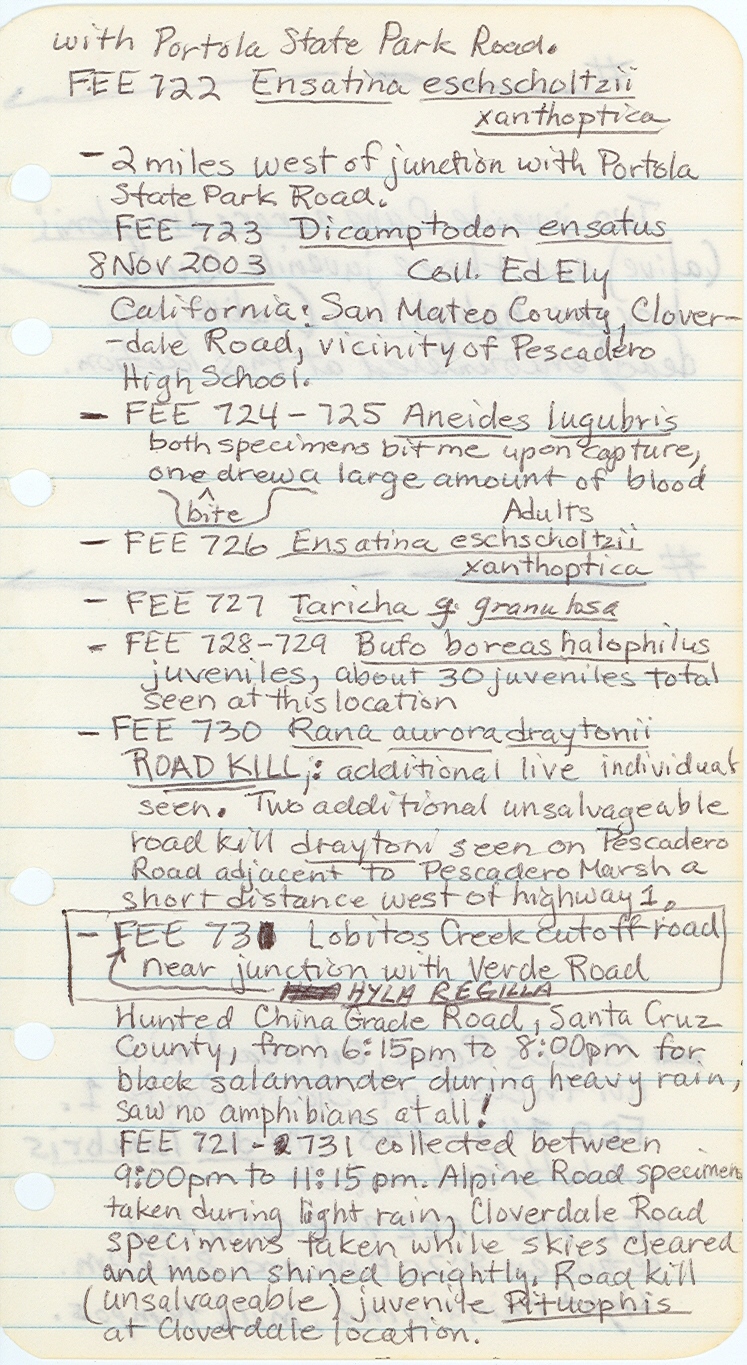 with Portola State Park Road.
FEE 722 Ensatina eschscholtzii
xanthoptica
- 2 miles west of junction with Portola
State Park Road.
FEE 723 Dicamptodon ensatus
8 Nov 2003 Coll. Ed Ely
California: San Mateo County, Clover-
-dale Road, vicinity of Pescadero
High School.
- FEE 724-725 Aneides lugubris
both specimens bit me upon capture,
one drew a large amount of blood
bite Adults
- FEE 726 Ensatina eschscholtzii
xanthoptica
- FEE 727 Taricha g. granulosa
- FEE 728-729 Bufo boreas halophilus
juveniles, about 30 juveniles total
seen at this location
- FEE 730 Rana aurora draytonii
ROAD KILL; additional live individual
seen. Two additional unsalvageable
road kill draytoni seen on Pescadero
Road adjacent to Pescadero Marsh a
short distance west of highway 1.
- FEE 731 Lobitos Creek cutoff road
near junction with Verde Road
HYLA REGILLA
Hunted China Grade Road, Santa Cruz
County, from 6:15pm to 8:00pm for
black salamander during heavy rain,
saw no amphibians at all!
FEE 721-731 collected between
9:00pm to 11:15 pm. Alpine Road specimens
taken during light rain, Cloverdale Road
specimens taken while skies cleared
and moon shined brightly. Road kill
(unsalvageable) juvenile Pituophis
at Cloverdale location.